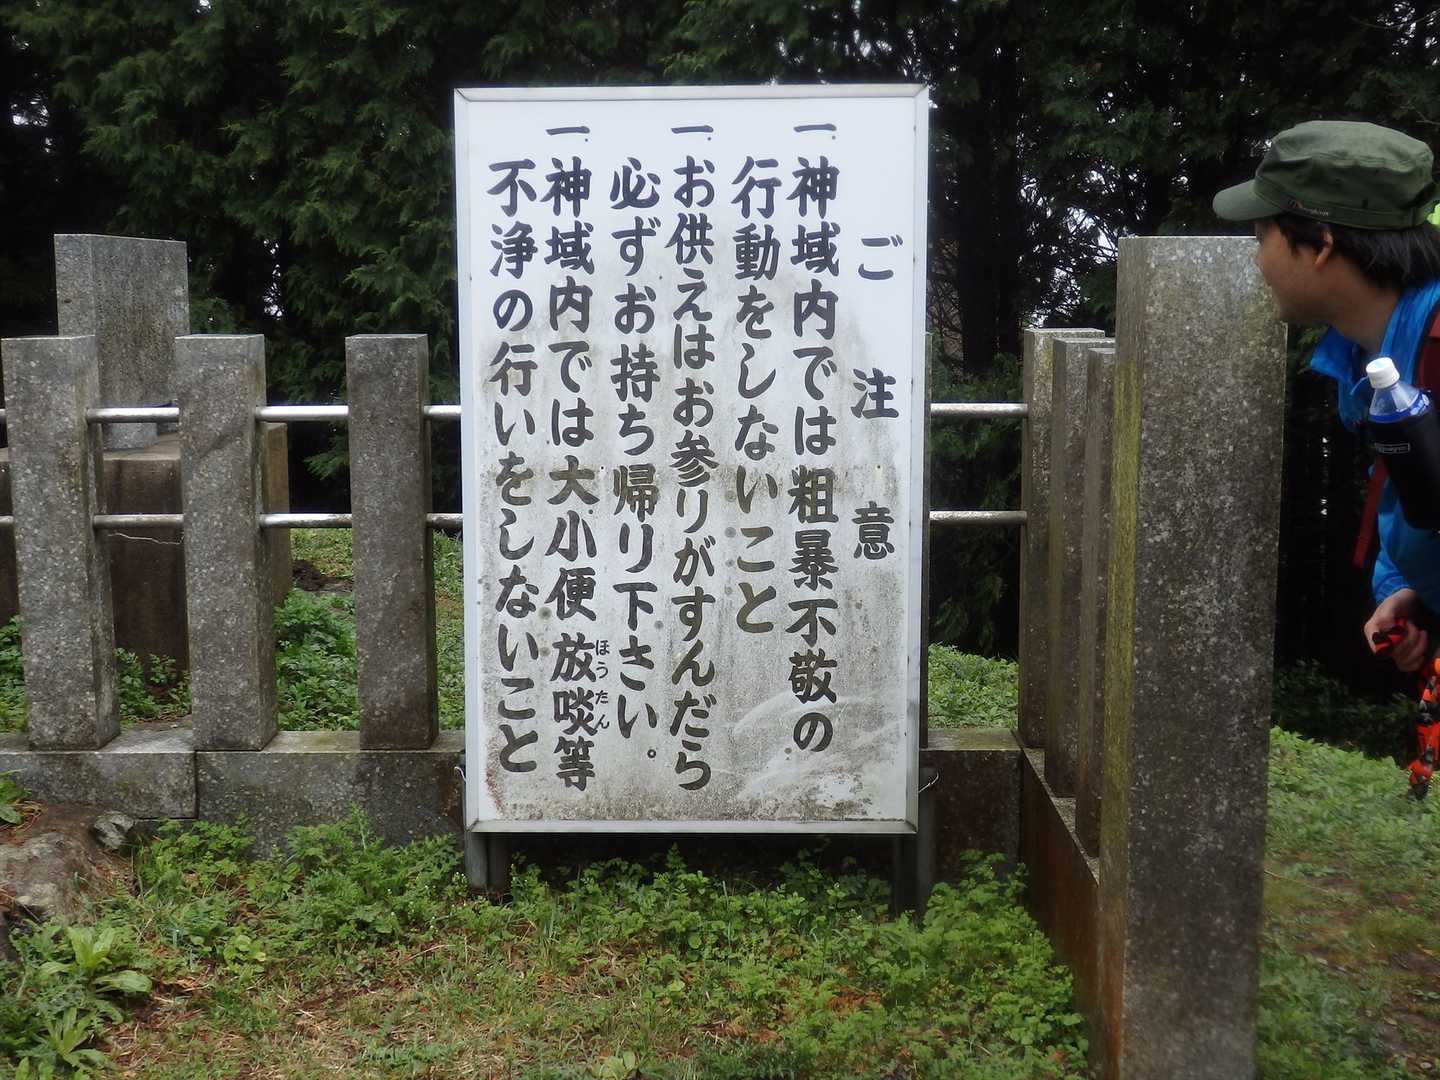 ご注意
一、神域内では粗暴不敬の
行動をしないこと
一、お供えはお参りがすんだら
必ずお持ち帰り下さい。
一、神域内では大小便放啖等
ほうたん
不浄の行いをしないこと